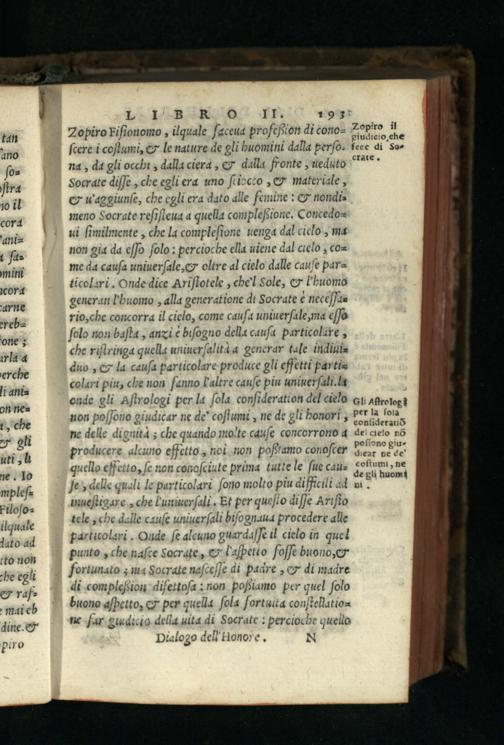 tan
ano
so=
ostra
no il
cora
l'ani=
a fa=
omini
ncora
carne
ereb=
one ;
arla a
perche
li ani=
on ne=
a , che
& gli
uti , li
ne . Io
mpless=
Filoso=
ilquale
dato ad
tto non
che egli
& raf=
e mai eb
dine. &
opiro
LIBRO II. 193
Zopiro Fisionomo , ilquale faceua profession di cono=
scere i costumi, & le nature de gli huomini dalla perso=
na , da gli occhi , dalla ciera , & dalla fronte , ueduto
Socrate disse , che egli era uno sciocco , & materiale ,
& u'aggiunse, che egli era dato alle femine : & nondi=
meno Socrate resisteua a quella complessione. Concedo=
ui similmente , che la complessione uenga dal cielo , ma
non gia da esso solo : percioche ella uiene dal cielo , co=
me da causa uniuersale, & oltre al cielo dalle cause par=
ticolari . Onde dice Aristotele , che'l Sole, & l'huomo
generan l'huomo , alla generatione di Socrate è necessa=
rio, che concorra il cielo, come causa uniuersale, ma esso
solo non basta , anzi è bisogno della causa particolare ,
che ristringa quella uniuersalità a generar tale indiui=
duo , & la causa particolare produce gli effetti parti=
colari piu, che non fanno l'altre cause piu uniuersali. la
onde gli Astrologi per la sola consideration del cielo
non possono giudicar ne de' costumi, ne de gli honori ,
ne delle dignità ; che quando molte cause concorrono a
producere alcuno effetto , noi non possiamo conoscer
quello effetto, se non conosciute prima tutte le sue cau=
se , delle quali le particolari sono molto piu difficili ad
inuestigare , che l'uniuersali . Et per questo disse Aristo
tele, che dalle cause uniuersali bisognaua procedere alle
particolari . Onde se alcuno guardasse il cielo in quel
punto , che nasce Socrate , & l'aspetto fosse buono, &
fortunato ; ma Socrate nascesse di padre , & di madre
di complession difettosa : non possiamo per quel solo
buono aspetto, & per quella sola fortuita constellatio=
ne far giudicio della uita di Socrate : percioche quello
Dialogo dell'Honore . N
Zopiro il
giudicio, che
fece di So=
crate .
Gli Astrologi
per la sola
consideratiõ
del cielo nõ
possono giu=
dicar ne de'
costumi, ne
de gli huomi
ni .